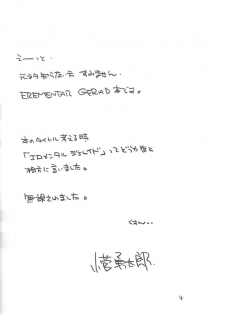 えーっと、
元ネタ知らない方 すみません。
EREMENTAR GERAD 本です。
本のタイトル考える時
「エロメンタルジェレイド」ってどうかなと
相方に言いました。
無視されました。
くすん…
4